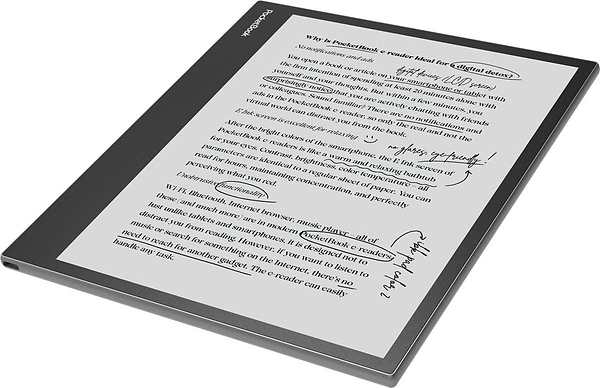 PocketBook
Why is PocketBook e-reader ideal for a digital detox?
No notifications and ads
You open a book or article on your smartphone or tablet with
the firm intention of spending at least 20 minutes alone with
yourself and your thoughts. But within a few minutes, you
surprisingly notice that you are actively chatting with friends
or colleagues. Sound familiar? There are no notifications and
ads in the PocketBook e-reader, so only the real and not the
virtual world can distract you from the book.
E Ink screen is excellent for relaxing
After the bright colors of the smartphone, the E Ink screen of
PocketBook e-readers is like a warm and relaxing bathtub
for your eyes. Contrast, brightness, color temperature – all
parameters are identical to a regular sheet of paper. You can
read for hours, maintaining concentration, and perfectly
perceiving what you read.
Unobtrusive functionality
Wi-Fi, Bluetooth, Internet browser, music player – all of
these, and much more, are in modern PocketBook e-readers.
Just unlike tablets and smartphones, it is designed not to
distract you from reading. However, if you want to listen to
music or search for something on the Internet, there's no
need to reach for another gadget. The e-reader can easily
handle any task.
LCD screen)
no glares, eye-friendly!